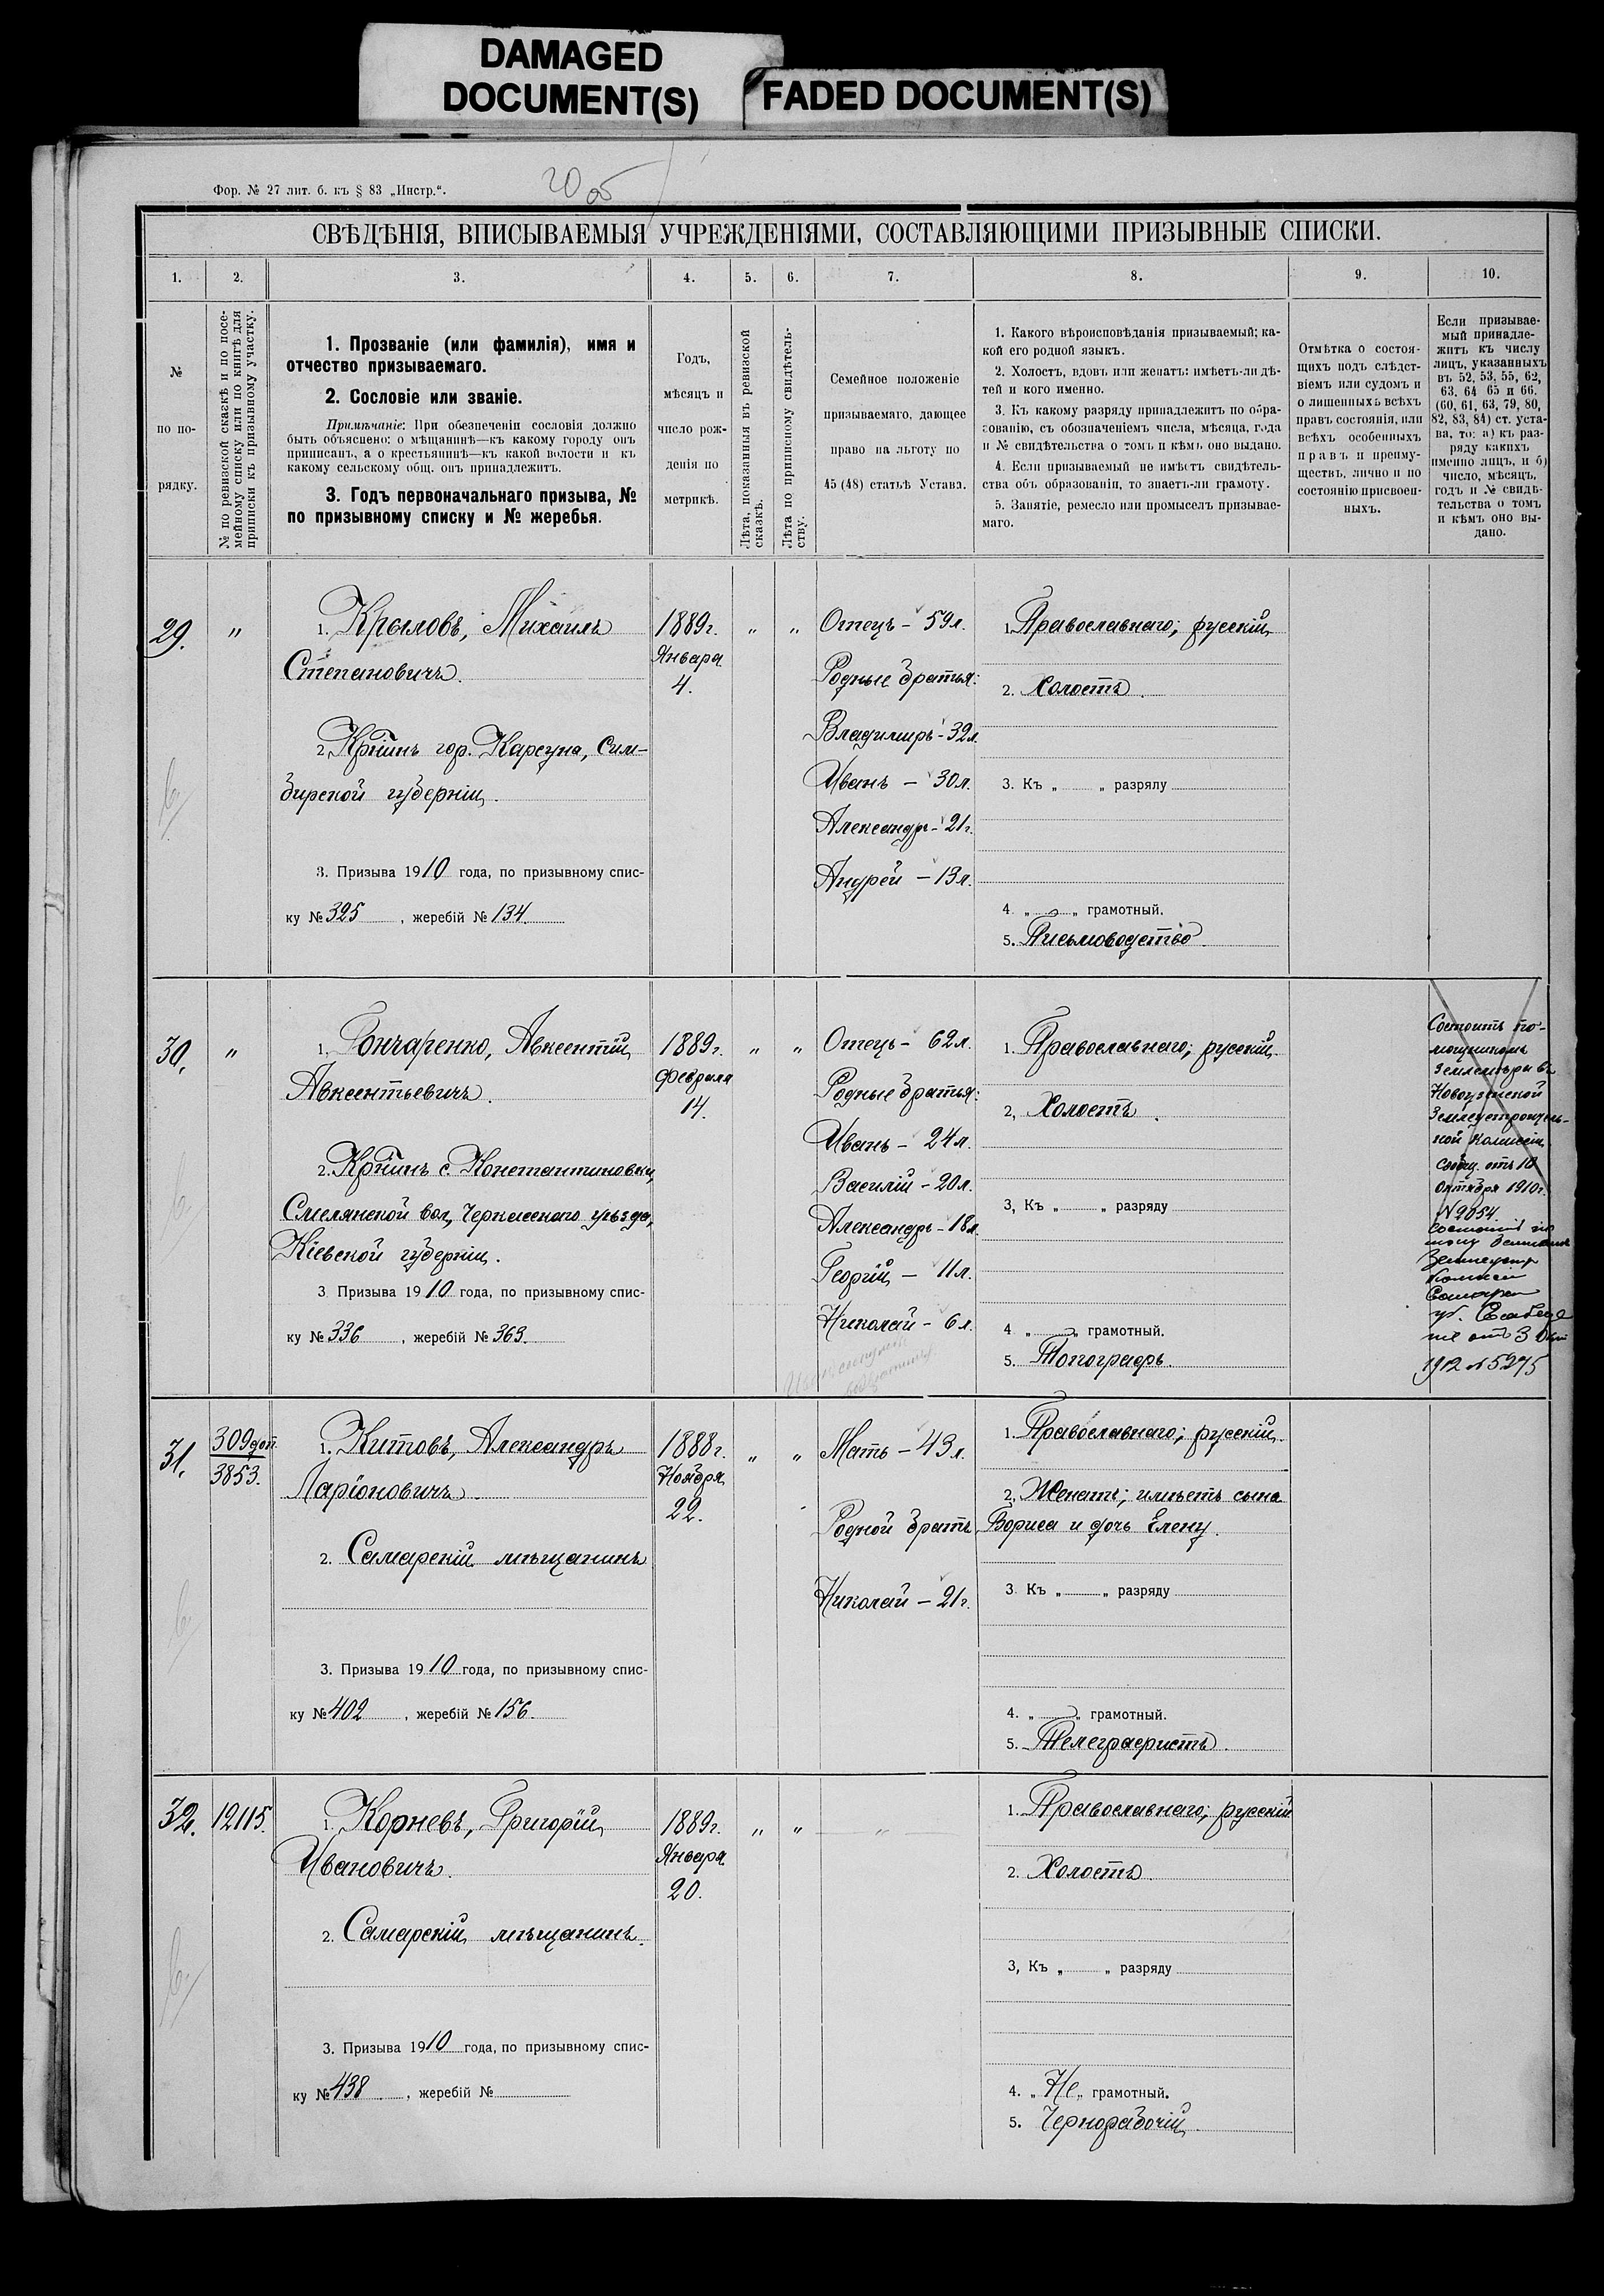 DAMAGED
DOCUMENT(S)
FADED DOCUMENT(S)
Фор. № 27 лит. б. къ § 83 „Инстр.“.
20 об
СВѢДѢНІЯ, ВПИСЫВАЕМЫЯ УЧРЕЖДЕНІЯМИ, СОСТАВЛЯЮЩИМИ ПРИЗЫВНЫЕ СПИСКИ.
1. 2. 3. 4. 5. 6. 7. 8. 9. 10.
№
по по-
рядку.
№ по ревизской сказкѣ и по посе-
мейному списку или по книгѣ для
приписки къ призывному участку.
1. Прозваніе (или фамилія), имя и
отчество призываемаго.
2. Сословіе или званіе.
Примѣчаніе: При обезпеченіи сословія должно
быть объяснено: о мѣщанинѣ—къ какому городу онъ
приписанъ, а о крестьянинѣ—къ какой волости и къ
какому сельскому общ. онъ принадлежитъ.
3. Годъ первоначальнаго призыва, №
по призывному списку и № жеребья.
Годъ,
мѣсяцъ и
число рож-
денія по
метрикѣ.
Лѣта, показанныя въ ревизской
сказкѣ.
Лѣта по приписному свидѣтель-
ству.
Семейное положеніе
призываемаго, дающее
право на льготу по
45 (48) статьѣ Устава.
1. Какого вѣроисповѣданія призываемый; ка-
кой его родной языкъ.
2. Холостъ, вдовъ или женатъ: имѣетъ-ли дѣ-
тей и кого именно.
3. Къ какому разряду принадлежитъ по обра-
зованію, съ обозначеніемъ числа, мѣсяца, года
и № свидѣтельства о томъ и кѣмъ оно выдано.
4. Если призываемый не имѣетъ свидѣтель-
ства объ образованіи, то знаетъ-ли грамоту.
5. Занятіе, ремесло или промыселъ призывае-
маго.
Отмѣтка о состоя-
щихъ подъ слѣдст-
віемъ или судомъ и
о лишенныхъ всѣхъ
правъ состоянія, или
всѣхъ особенныхъ
правъ и преиму-
ществъ, лично и по
состоянію присвоен-
ныхъ.
Если призывае-
мый принадле-
житъ къ числу
лицъ, указанныхъ
въ 52, 53, 55, 62,
63, 64 65 и 66.
(60, 61, 63, 79, 80,
82, 83, 84) ст. уста-
ва, то: а) къ раз-
ряду какихъ
именно лицъ, и б)
число, мѣсяцъ,
годъ и № свидѣ-
тельства о томъ
и кѣмъ оно вы-
дано.
29. „
1. Крыловъ, Михаилъ
Степановичъ.
2. Крпинъ гор. Карсуна, Сим-
бирской губерніи.
3. Призыва 1910 года, по призывному спис-
ку № 325, жеребій № 134.
1889г.
Января
4.
„ „
Отецъ – 59 л.
Родные братья:
Владимиръ – 32 л.
Иванъ – 30 л.
Александръ – 21 г.
Андрей – 13 л.
1. Православнаго; русскій
2. Холостъ.
3. Къ „ „ разряду
4. „ „ грамотный.
5. Письмоводство.
30. „
1. Гончаренко, Авксентій
Авксентьевичъ.
2. Крпинъ с. Константиновки,
Смелянской вол, Черкасскаго уѣзда,
Кіевской губерніи.
3 Призыва 1910 года, по призывному спис-
ку № 336, жеребій № 363.
1889г.
Февраля
14.
„ „
Отецъ – 62 л.
Родные братья:
Иванъ – 24 л.
Василій – 20 л.
Александръ – 18 л.
Георгій – 11 л.
Николай – 6 л.
1. Православнаго; русскій.
2, Холостъ.
3, Къ „ „ разряду
4 „ „ грамотный.
5. Топографъ.
Состоитъ по-
мощникомъ
землемѣра въ
Новоузенской
Землеустроитель-
ной комиссіи
сообщ. отъ 10
Октября 1910г.
№ 2054
1912 № 5275
31. 309 доп.
3853.
1. Китовъ, Александръ
Ларіоновичъ.
2. Самарскій мѣщанинъ
3. Призыва 1910 года, по призывному спис-
ку № 402, жеребій № 156.
1888г.
Ноября
22.
„ „
Мать – 43 л.
Родной братъ
Николай – 21 г.
1. Православнаго; русскій.
2. Женатъ; имѣетъ сына
Бориса и дочь Елену.
3. Къ „ „ разряду
4. „ „ грамотный.
5. Телеграфистъ.
32. 12115.
1. Корневъ, Григорій
Ивановичъ.
2. Самарскій мѣщанинъ.
3. Призыва 1910 года, по призывному спис-
ку № 438, жеребій №
1889г.
Января
20.
„ „ „
1. Православнаго; русскій
2. Холостъ.
3, Къ „ „ разряду
4. „ Не „ грамотный.
5. Чернорабочій.